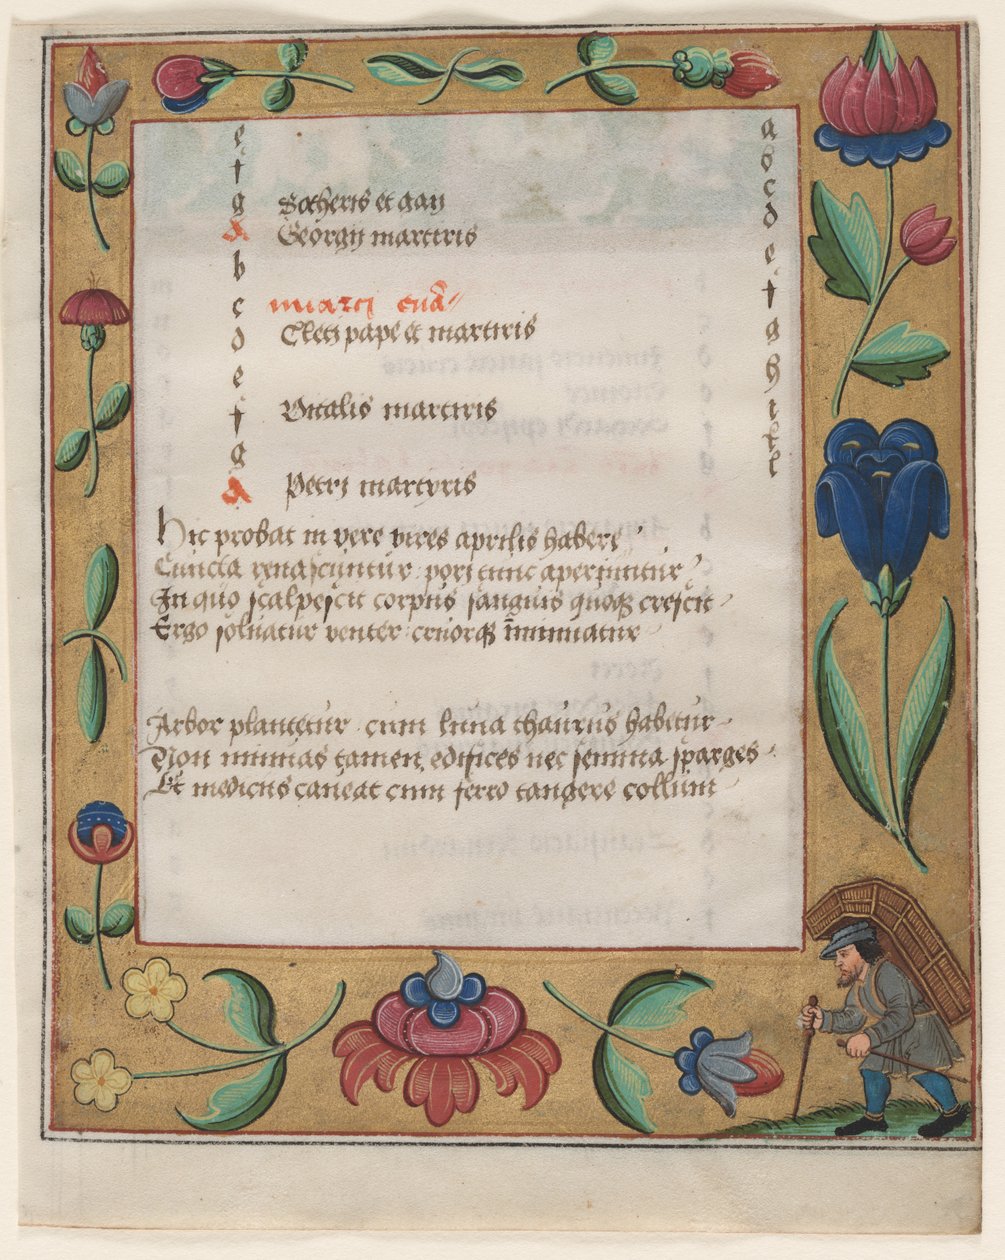 e a
f b
g Sotheris et gaij c
A Georgij martiris d
b e
c marci eua~ f
d Cleti pape et martiris g
e h
f Vitalis martiris i
g k
A Petri martyris l
Hic probat in vere vires aprilis habere
Cuncta renascuntur pori tunc aperiuntur
In quo scalpescit corpus sanguis quoqȝ crescit
Ergo soluatur venter cruorqȝ īminuatur
Arbor plantetur cum luna thaurus habetur
Non minuas tamen edifices nec semina sparges
Et medicus caueat cum ferro tangere collum